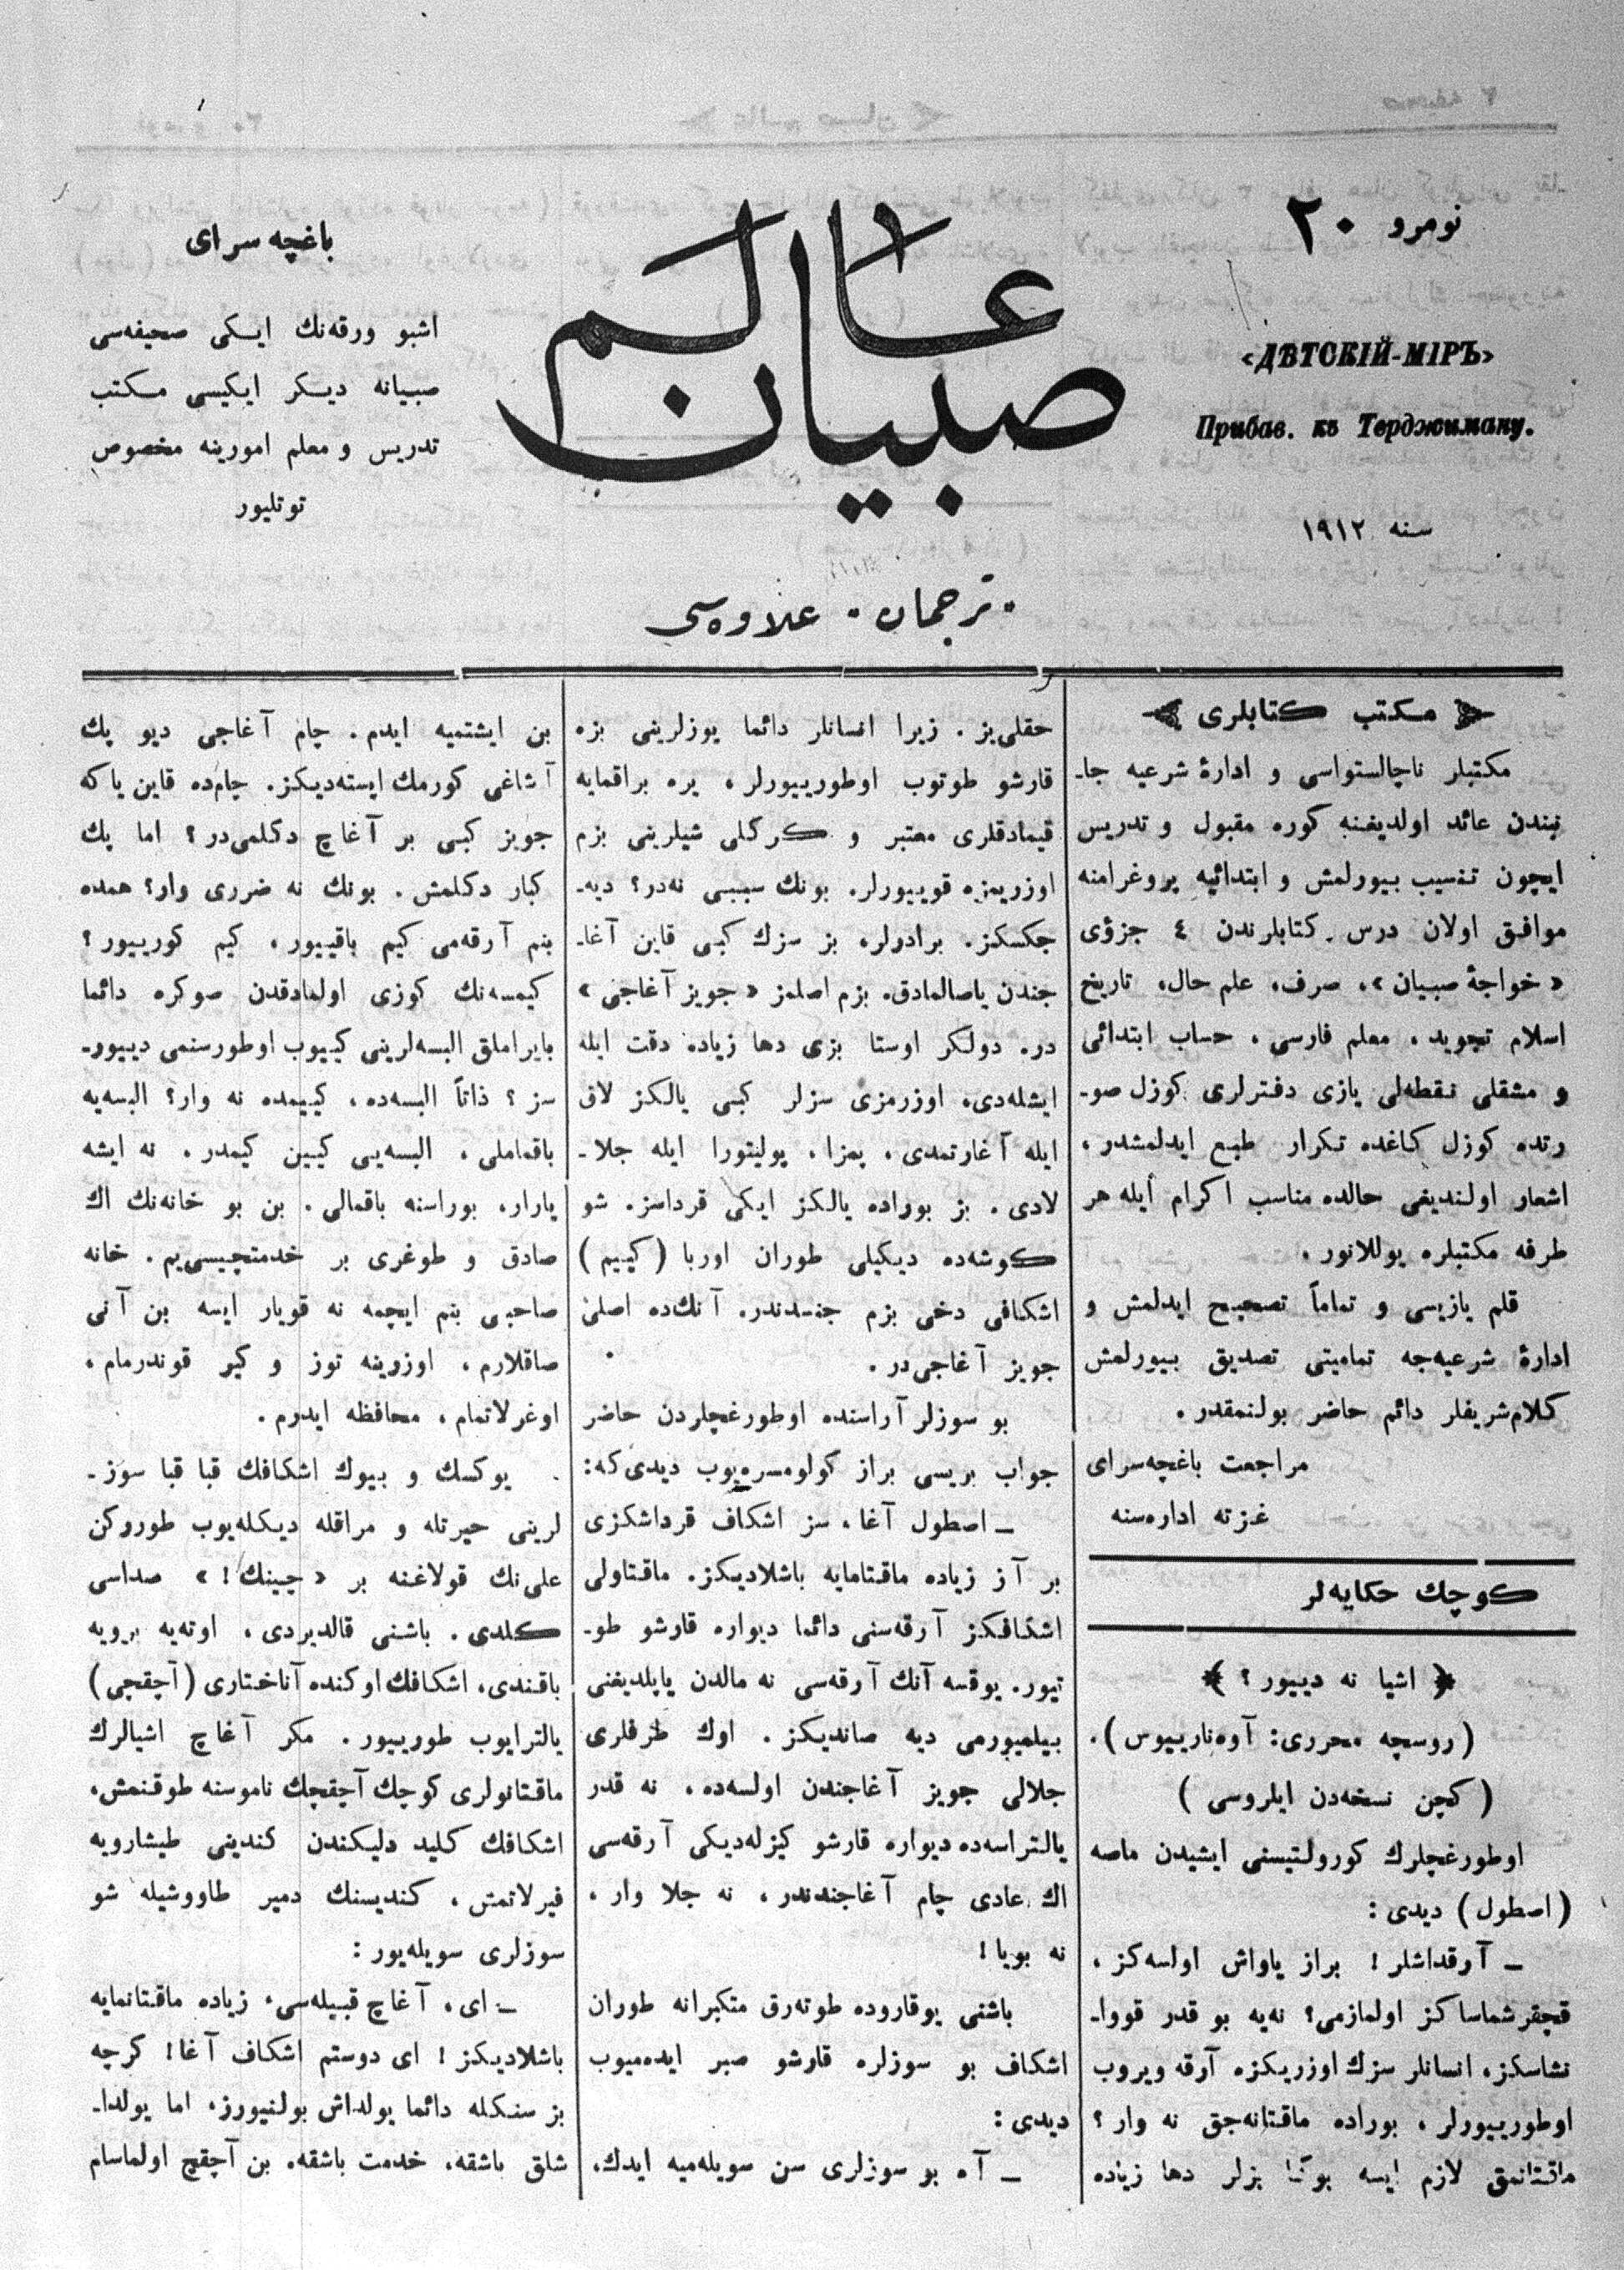 نومرو ٢٠
«ДѢТСКІЙ-МІРЪ»
Прибав. къ Терджиману.
سنه ١٩١٢
عالم
صبيان
ترجمان علاوه‌سی
باغچه سرای
اشبو ورقه‌نك ایكی صحیفه‌سی
صبیانه دیكر ایكیسی مكتب
تدریس و معلم امورینه مخصوص
توتلیور
مكتب كتابلری
مكتبلر ناچالستواسی و ادارۀ شرعیه جا-
نبندن عائد اولدیغنه كوره مقبول و تدریس
ایچون تنسیب بیورلمش و ابتدائیه پروغرامنه
موافق اولان درس كتابلرندن ٤ جزؤی
«خواجۀ صبیان»، صرف، علم حال، تاریخ
اسلام تجوید، معلم فارسی، حساب ابتدائی
و مشقلی نقطه‌لی یازی دفترلری كوزل صو-
رتده كوزل كاغده تكرار طبع ایدلمشدر،
اشعار اولندیغی حالده مناسب اكرام ایله هر
طرفه مكتبلره یوللانور.
قلم یازیسی و تماماً تصحیح ایدلمش و
ادارۀ شرعیه‌جه تمامیتی تصدیق بیورلمش
كلام‌شریفلر دائم حاضر بولنمقدر.
مراجعت باغچه‌سرای
غزته اداره‌سنه
كوچك حكایه‌لر
﴿ اشیا نه دییور؟ ﴾
(روسچه محرری: آوه‌نارییوس).
(كچن نسخه‌دن ایلروسی)
اوطورغچلرك كورولتیسنی ایشیدن ماصه
(اصطول) دیدی:
— آرقداشلر! براز یاواش اولسه‌كز،
قچقرشماساكز اولمازمی؟ نه‌یه بو قدر قووا-
نشاسكز، انسانلر سزك اوزریكزه آرقه ویروب
اوطورییورلر، بوراده ماقتانه‌جق نه وار؟
ماقتانمق لازم ایسه بوكا بزلر دها زیاده
حقلی‌یز. زیرا انسانلر دائما یوزلرینی بزه
قارشو طوتوب اوطورییورلر، یره براقمایه
قیمادقلری معتبر و كركلی شیلرینی بزم
اوزریمزه قویییورلر. بونك سببی نه‌در؟ دیه-
جكسكز. برادرلر، بز سزك كبی قاین آغا-
جندن یاصالمادق. بزم اصلمز «جویز آغاجی»
در. دولكر اوستا بزی دها زیاده دقت ایله
ایشله‌دی، اوزرمزی سزلر كبی یالكز لاق
ایله آغارتمدی، پمزا، پولیتورا ایله جلا-
لادی. بز بوراده یالكز ایكی قرداسز. شو
كوشه‌ده دیكیلی طوران اوربا (كییم)
اشكافی دخی بزم جنسدندر. آنك‌ده اصلی
جویز آغاجی‌در.
بو سوزلر آراسنده اوطورغچلردن حاضر
جواب بریسی براز كولومسره‌یوب دیدی‌كه:
— اصطول آغا، سز اشكاف قرداشكزی
بر آز زیاده ماقتامایه باشلادیكز. ماقتاولی
اشكافكز آرقه‌سنی دائما دیواره قارشو طو-
تیور. یوقسه آنك آرقه‌سی نه مالدن یاپلدیغنی
بیلمیورمی دیه صاندیكز. اوك طرفلری
جلالی جویز آغاجندن اولسه‌ده، نه قدر
یالتراسه‌ده دیواره قارشو كیزله‌دیكی آرقه‌سی
اك عادی چام آغاجندندر، نه جلا وار،
نه بویا!
باشنی یوقاروده طوته‌رق متكبرانه طوران
اشكاف بو سوزلره قارشو صبر ایده‌میوب
دیدی:
— آه بو سوزلری سن سویله‌میه ایدك،
بن ایشتمیه ایدم. چام آغاجی دیو پك
آشاغی كورمك ایسته‌دیكز. چام‌ده قاین یاكه
جویز كبی بر آغاچ دكلمی‌در؟ اما پك
كبار دكلمش. بونك نه ضرری وار؟ همده
بنم آرقه‌می كیم باقییور، كیم كورییور؟
كیمسه‌نك كوزی اولمادقدن صوكره دائما
بایراملق البسه‌لرینی كییوب اوطورسنمی دییور-
سز؟ ذاتاً البسه‌ده، كییمده نه وار؟ البسه‌یه
باقماملی، البسه‌یی كیین كیمدر. نه ایشه
یارار، بوراسنه باقمالی. بن بو خانه‌نك اك
صادق و طوغری بر خدمتچیسی‌یم. خانه
صاحبی بنم ایچمه نه قویار ایسه بن آنی
صاقلارم، اوزرینه توز و كیر قوندرمام،
اوغرلاتمام، محافظه ایدرم.
یوكسك و بیوك اشكافك قبا قبا سوز-
لرینی حیرتله و مراقله دیكله‌یوب طوروركن
علی‌نك قولاغنه بر «چینك!» صداسی
كلدی. باشنی قالدیردی، اوته‌یه برویه
باقندی، اشكافك اوكنده آناختاری (آچقجی)
یالترایوب طورییور. مكر آغاچ اشیالرك
ماقتانولری كوچك آچقچك ناموسنه طوقنمش،
اشكافك كلید دلیكندن كندینی طیشارویه
فیرلاتمش، كندیسنك دمیر طاووشیله شو
سوزلری سویله‌یور:
— ای، آغاچ قبیله‌سی، زیاده ماقتانمایه
باشلادیكز! ای دوستم اشكاف آغا! كرچه
بز سنكله دائما یولداش بولنیورز، اما یولدا-
شلق باشقه، خدمت باشقه. بن آچقچ اولماسام